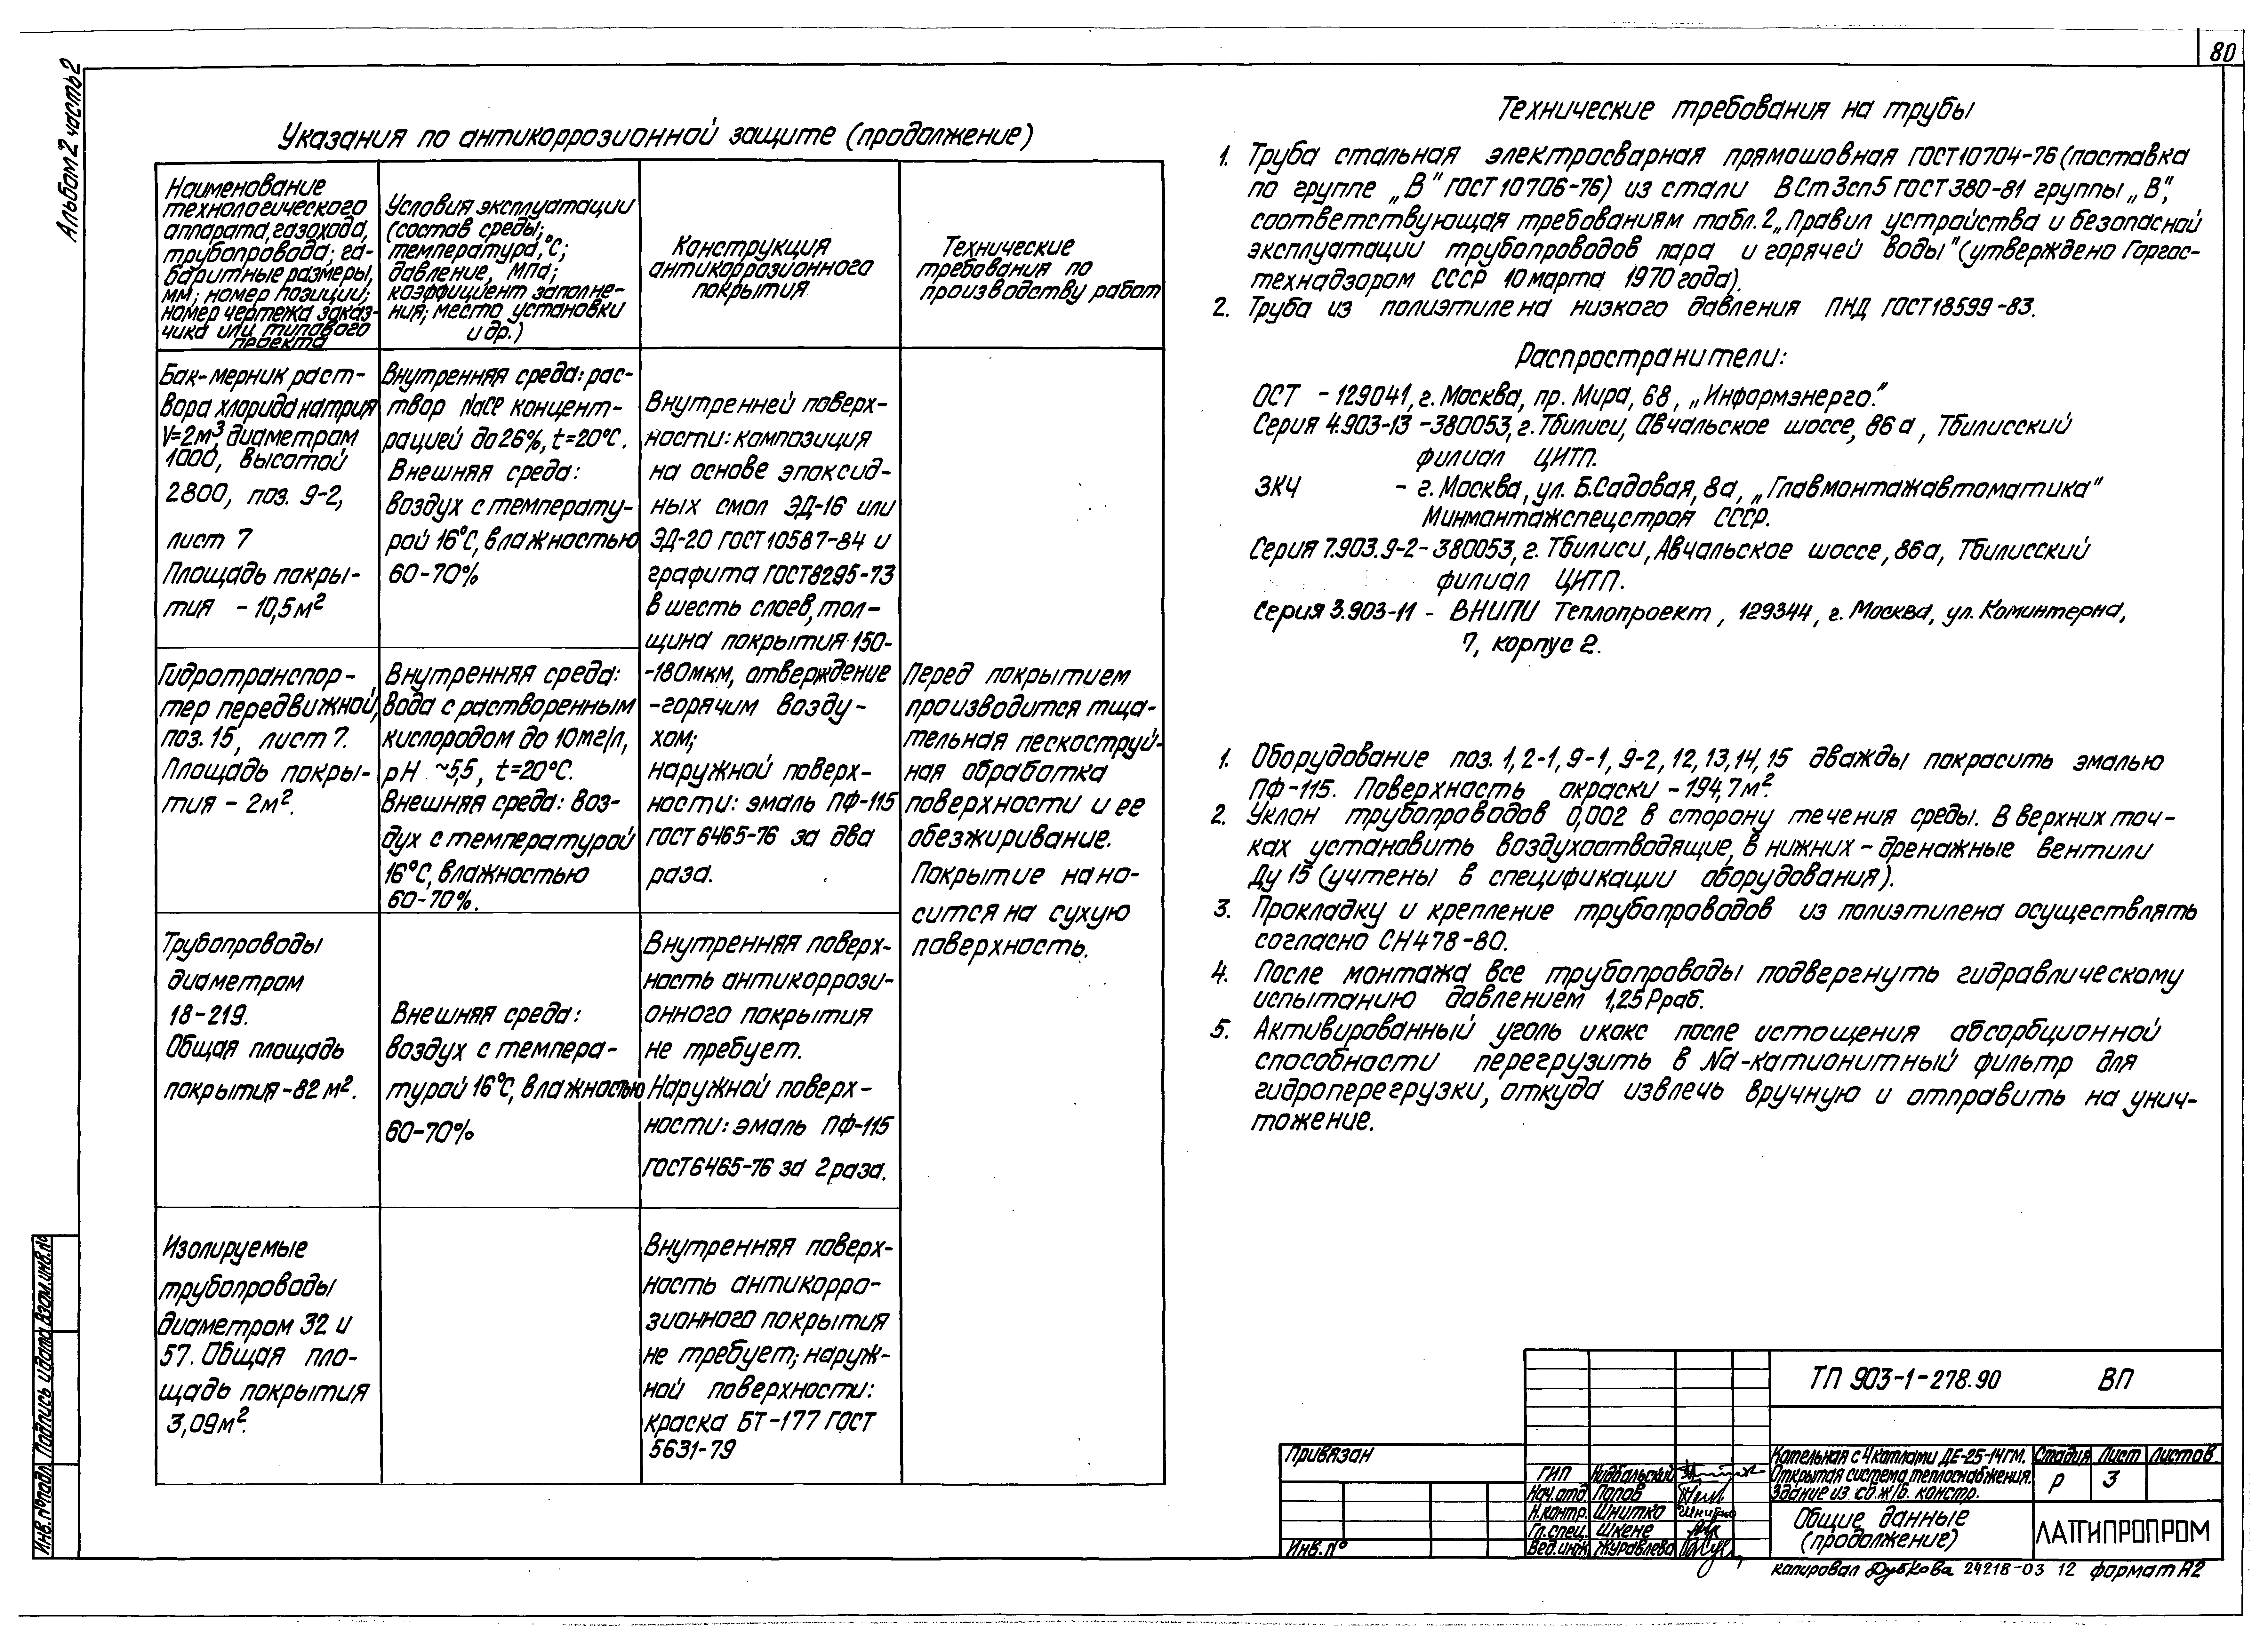 80
Альбом 2 часть 2
Указания по антикоррозионной защите (продолжение)
Наименование
технологического
аппарата, газохода,
трубопровода; га-
баритные размеры,
мм; номер позиции;
номер чертежа заказ-
чика или типового
проекта
Условия эксплуатации
(состав среды;
температура, °С;
давление, МПа;
коэффициент заполне-
ния; место установки
и др.)
Конструкция
антикоррозионного
покрытия
Технические
требования по
производству работ
Бак-мерник раст-
вора хлорида натрия
V=2м³, диаметром
1000, высотой
2800, поз. 9-2,
лист 7
Площадь покры-
тия - 10,5 м²
Внутренняя среда: рас-
твор NaCl концент-
рацией до 26%, t=20°С.
Внешняя среда:
воздух с температу-
рой 16°С, влажностью
60-70%
Внутренней поверх-
ности: композиция
на основе эпоксид-
ных смол ЭД-16 или
ЭД-20 ГОСТ 10587-84 и
графита ГОСТ 8295-73
в шесть слоев, тол-
щина покрытия 150-
-180мкм, отверждение
-горячим возду-
хом;
наружной поверх-
ности: эмаль ПФ-115
ГОСТ 6465-76 за два
раза.
Гидротранспор-
тер передвижной,
поз. 15, лист 7.
Площадь покры-
тия - 2м².
Внутренняя среда:
вода с растворенным
кислородом до 10мг/л,
pH ~5,5, t=20°С.
Внешняя среда: воз-
дух с температурой
16°С, влажностью
60-70%.
Перед покрытием
производится тща-
тельная пескоструй-
ная обработка
поверхности и ее
обезжиривание.
Покрытие нано-
сится на сухую
поверхность.
Трубопроводы
диаметром
18-219.
Общая площадь
покрытия-82 м².
Внешняя среда:
воздух с темпера-
турой 16°С, влажностью
60-70%
Внутренняя поверх-
ность антикоррози-
онного покрытия
не требует.
Наружной поверх-
ности: эмаль ПФ-115
ГОСТ 6465-76 за 2 раза.
Изолируемые
трубопроводы
диаметром 32 и
57. Общая пло-
щадь покрытия
3,09м².
Внутренняя поверх-
ность антикорро-
зионного покрытия
не требует; наруж-
ной поверхности:
краска БТ-177 ГОСТ
5631-79
Технические требования на трубы
1. Труба стальная электросварная прямошовная ГОСТ 10704-76 (поставка
по группе „В" ГОСТ 10706-76) из стали ВСт3сп5 ГОСТ 380-81 группы „В",
соответствующая требованиям табл. 2 „Правил устройства и безопасной
эксплуатации трубопроводов пара и горячей воды" (утверждено Горгос-
технадзором СССР 10 марта 1970 года).
2. Труба из полиэтилена низкого давления ПНД ГОСТ 18599-83.
Распространители:
ОСТ - 129041, г. Москва, пр. Мира, 68, „Информэнерго."
Серия 4.903-13 - 380053, г. Тбилиси, Авчальское шоссе, 86а, Тбилисский
филиал ЦИТП.
ЗКЧ - г. Москва, ул. Б.Садовая, 8а, „Главмонтажавтоматика"
Минмонтажспецстроя СССР.
Серия 7.903.9-2 - 380053, г. Тбилиси, Авчальское шоссе, 86а, Тбилисский
филиал ЦИТП.
Серия 3.903-11 - ВНИПИ Теплопроект, 129344, г. Москва, ул. Коминтерна,
7, корпус 2.
1. Оборудование поз. 1, 2-1, 9-1, 9-2, 12, 13, 14, 15 дважды покрасить эмалью
ПФ-115. Поверхность окраски - 194,7 м².
2. Уклон трубопроводов 0,002 в сторону течения среды. В верхних точ-
ках установить воздухоотводящие, в нижних - дренажные вентили
Ду 15 (учтены в спецификации оборудования).
3. Прокладку и крепление трубопроводов из полиэтилена осуществлять
согласно СН 478-80.
4. После монтажа все трубопроводы подвергнуть гидравлическому
испытанию давлением 1,25 Рраб.
5. Активированный уголь и кокс после истощения абсорбционной
способности перегрузить в Na-катионитный фильтр для
гидроперегрузки, откуда извлечь вручную и отправить на унич-
тожение.
Инв. № подл. Подпись и дата Взам. инв. №
Привязан
Инв. №
ГИП Нидбальский
Нач. отд. Попов
Н. контр. Шнитко Шнитко
Гл. спец. Шкене
Вед. инж. Журавлева
ТП 903-1-278.90 ВП
Котельная с 4 котлами ДЕ-25-14ГМ.
Открытая система теплоснабжения.
Здание из сб. ж/б. констр.
Стадия Лист Листов
Р 3
Общие данные
(продолжение)
ЛАТГИПРОПРОМ
копировал Дубкова 24218-03 12 формат А2